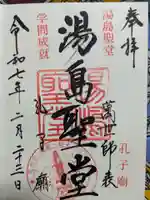 奉拝
湯島聖堂
孔子廟
萬世師表
湯島聖堂
孔子廟
学問成就
令和七年二月二十三日